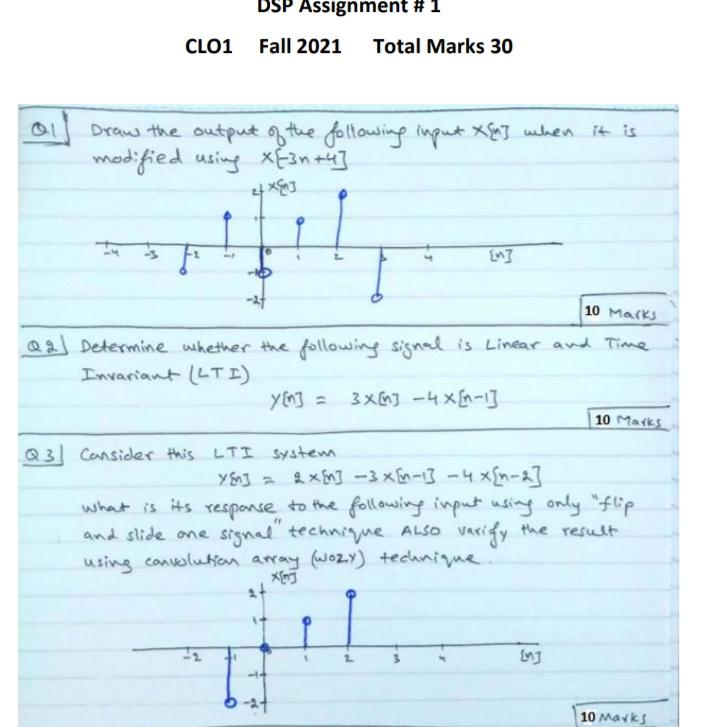 DSP Assignment # 1
CLO1 Fall 2021 Total Marks 30
Q1 Draw the output of the following input X[n] when it is
modified using X[-3n+4]
2 X[n]
-4 -3 -2 -1 0 1 2 4 [n]
-1
-2
10 Marks
Q2 Determine whether the following signal is Linear and Time
Invariant (LTI)
y[n] = 3x[n] -4x[n-1]
10 Marks
Q3 Consider this LTI system
y[n] = 2x[n] -3x[n-1] -4x[n-2]
what is its response to the following input using only "flip
and slide one signal" technique ALSO varify the result
using convolution array (WOZY) technique.
X[n]
2
1
-2 -1 1 2 3 4 [n]
-1
-2
10 Marks